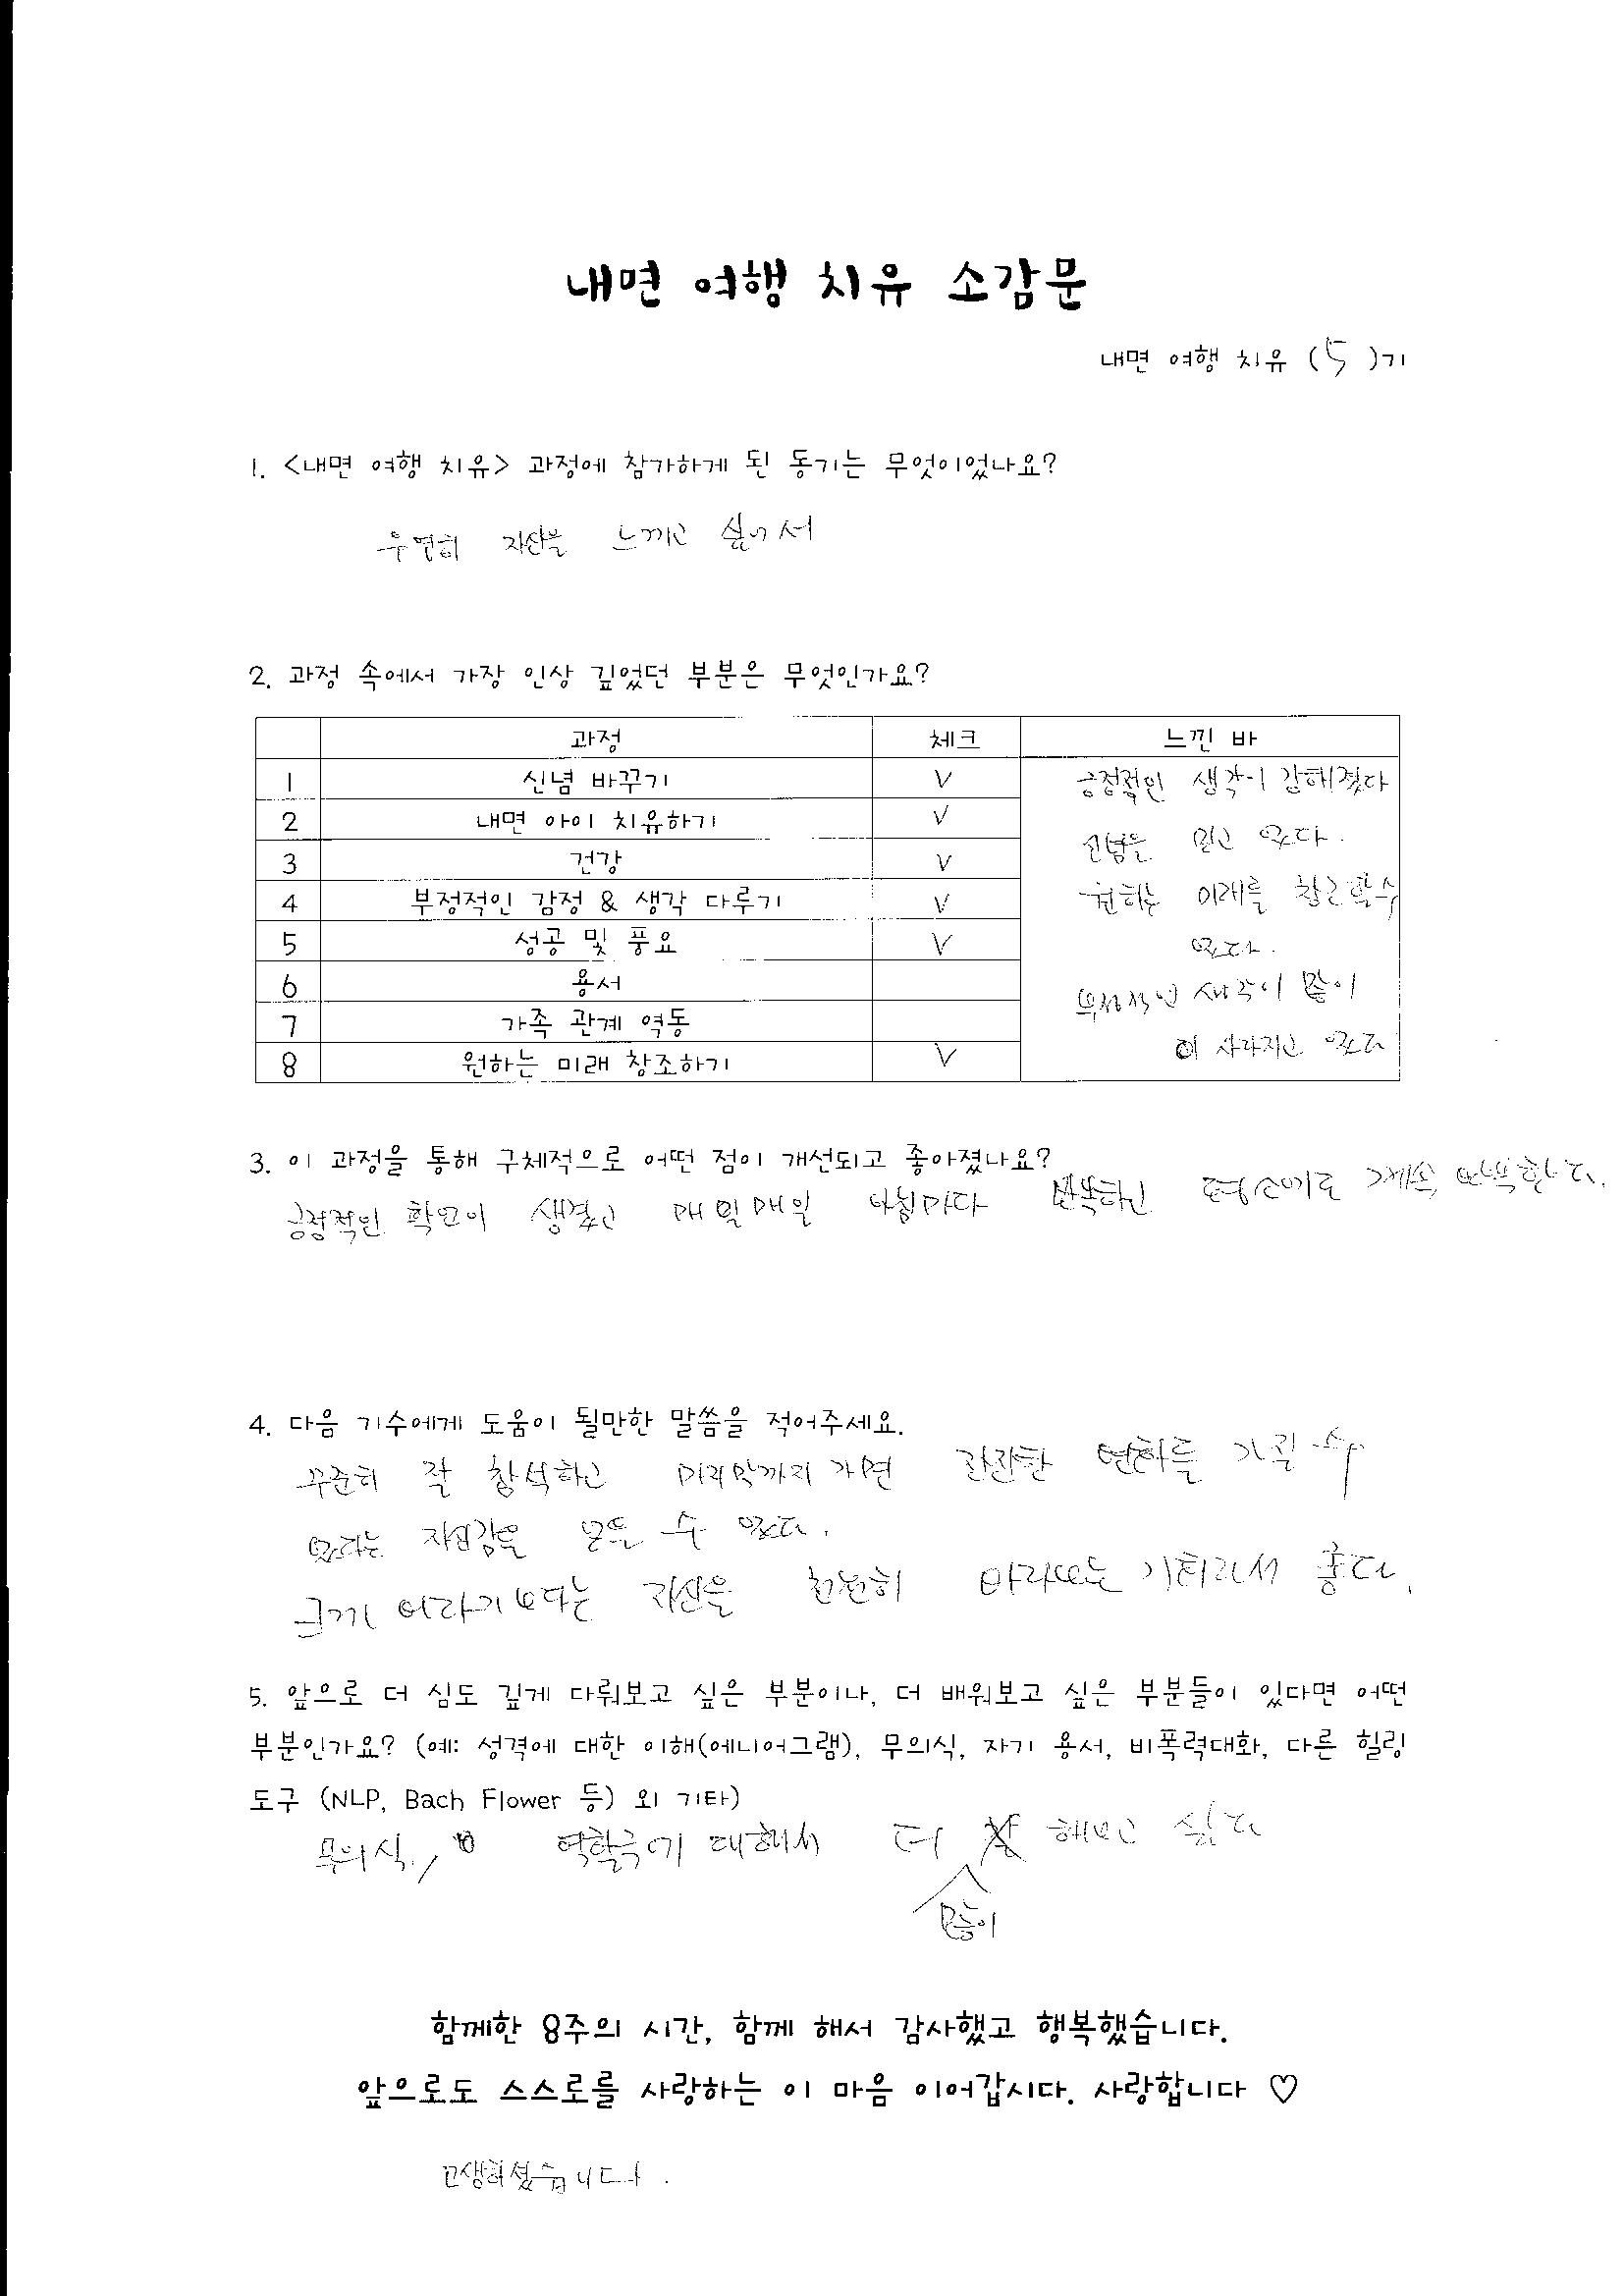 내면 여행 치유 소감문
내면 여행 치유 (5)기
1. <내면 여행 치유> 과정에 참가하게 된 동기는 무엇이었나요?
우연히 자신을 느끼고 싶어서
2. 과정 속에서 가장 인상 깊었던 부분은 무엇인가요?
과정 체크 느낀 바
1 신념 바꾸기 V 긍정적인 생각이 강해졌다
2 내면 아이 치유하기 V
신념을 믿고 있다.
3 건강 V
4 부정적인 감정 & 생각 다루기 V 원하는 미래를 창조할수
5 성공 및 풍요 V 있다.
6 용서
부정적인 생각이 많이
7 가족 관계 역동
8 원하는 미래 창조하기 V 사라지고 있다
3. 이 과정을 통해 구체적으로 어떤 점이 개선되고 좋아졌나요?
긍정적인 확언이 생겼고 매일매일 아침마다 반복하고 평소에도 계속 반복한다.
4. 다음 기수에게 도움이 될만한 말씀을 적어주세요.
꾸준히 잘 참석하고 마지막까지 가면 잔잔한 변화를 가질 수
있다는 자신감을 얻을 수 있다.
자신을 천천히 바라보는 좋다.
5. 앞으로 더 심도 깊게 다뤄보고 싶은 부분이나, 더 배워보고 싶은 부분들이 있다면 어떤
부분인가요? (예: 성격에 대한 이해(에니어그램), 무의식, 자기 용서, 비폭력대화, 다른 힐링
도구 (NLP, Bach Flower 등) 외 기타)
무의식, 역할극에 대해서 더 해보고 싶다
많이
함께한 8주의 시간, 함께 해서 감사했고 행복했습니다.
앞으로도 스스로를 사랑하는 이 마음 이어갑시다. 사랑합니다 ♡
고생하셨습니다.